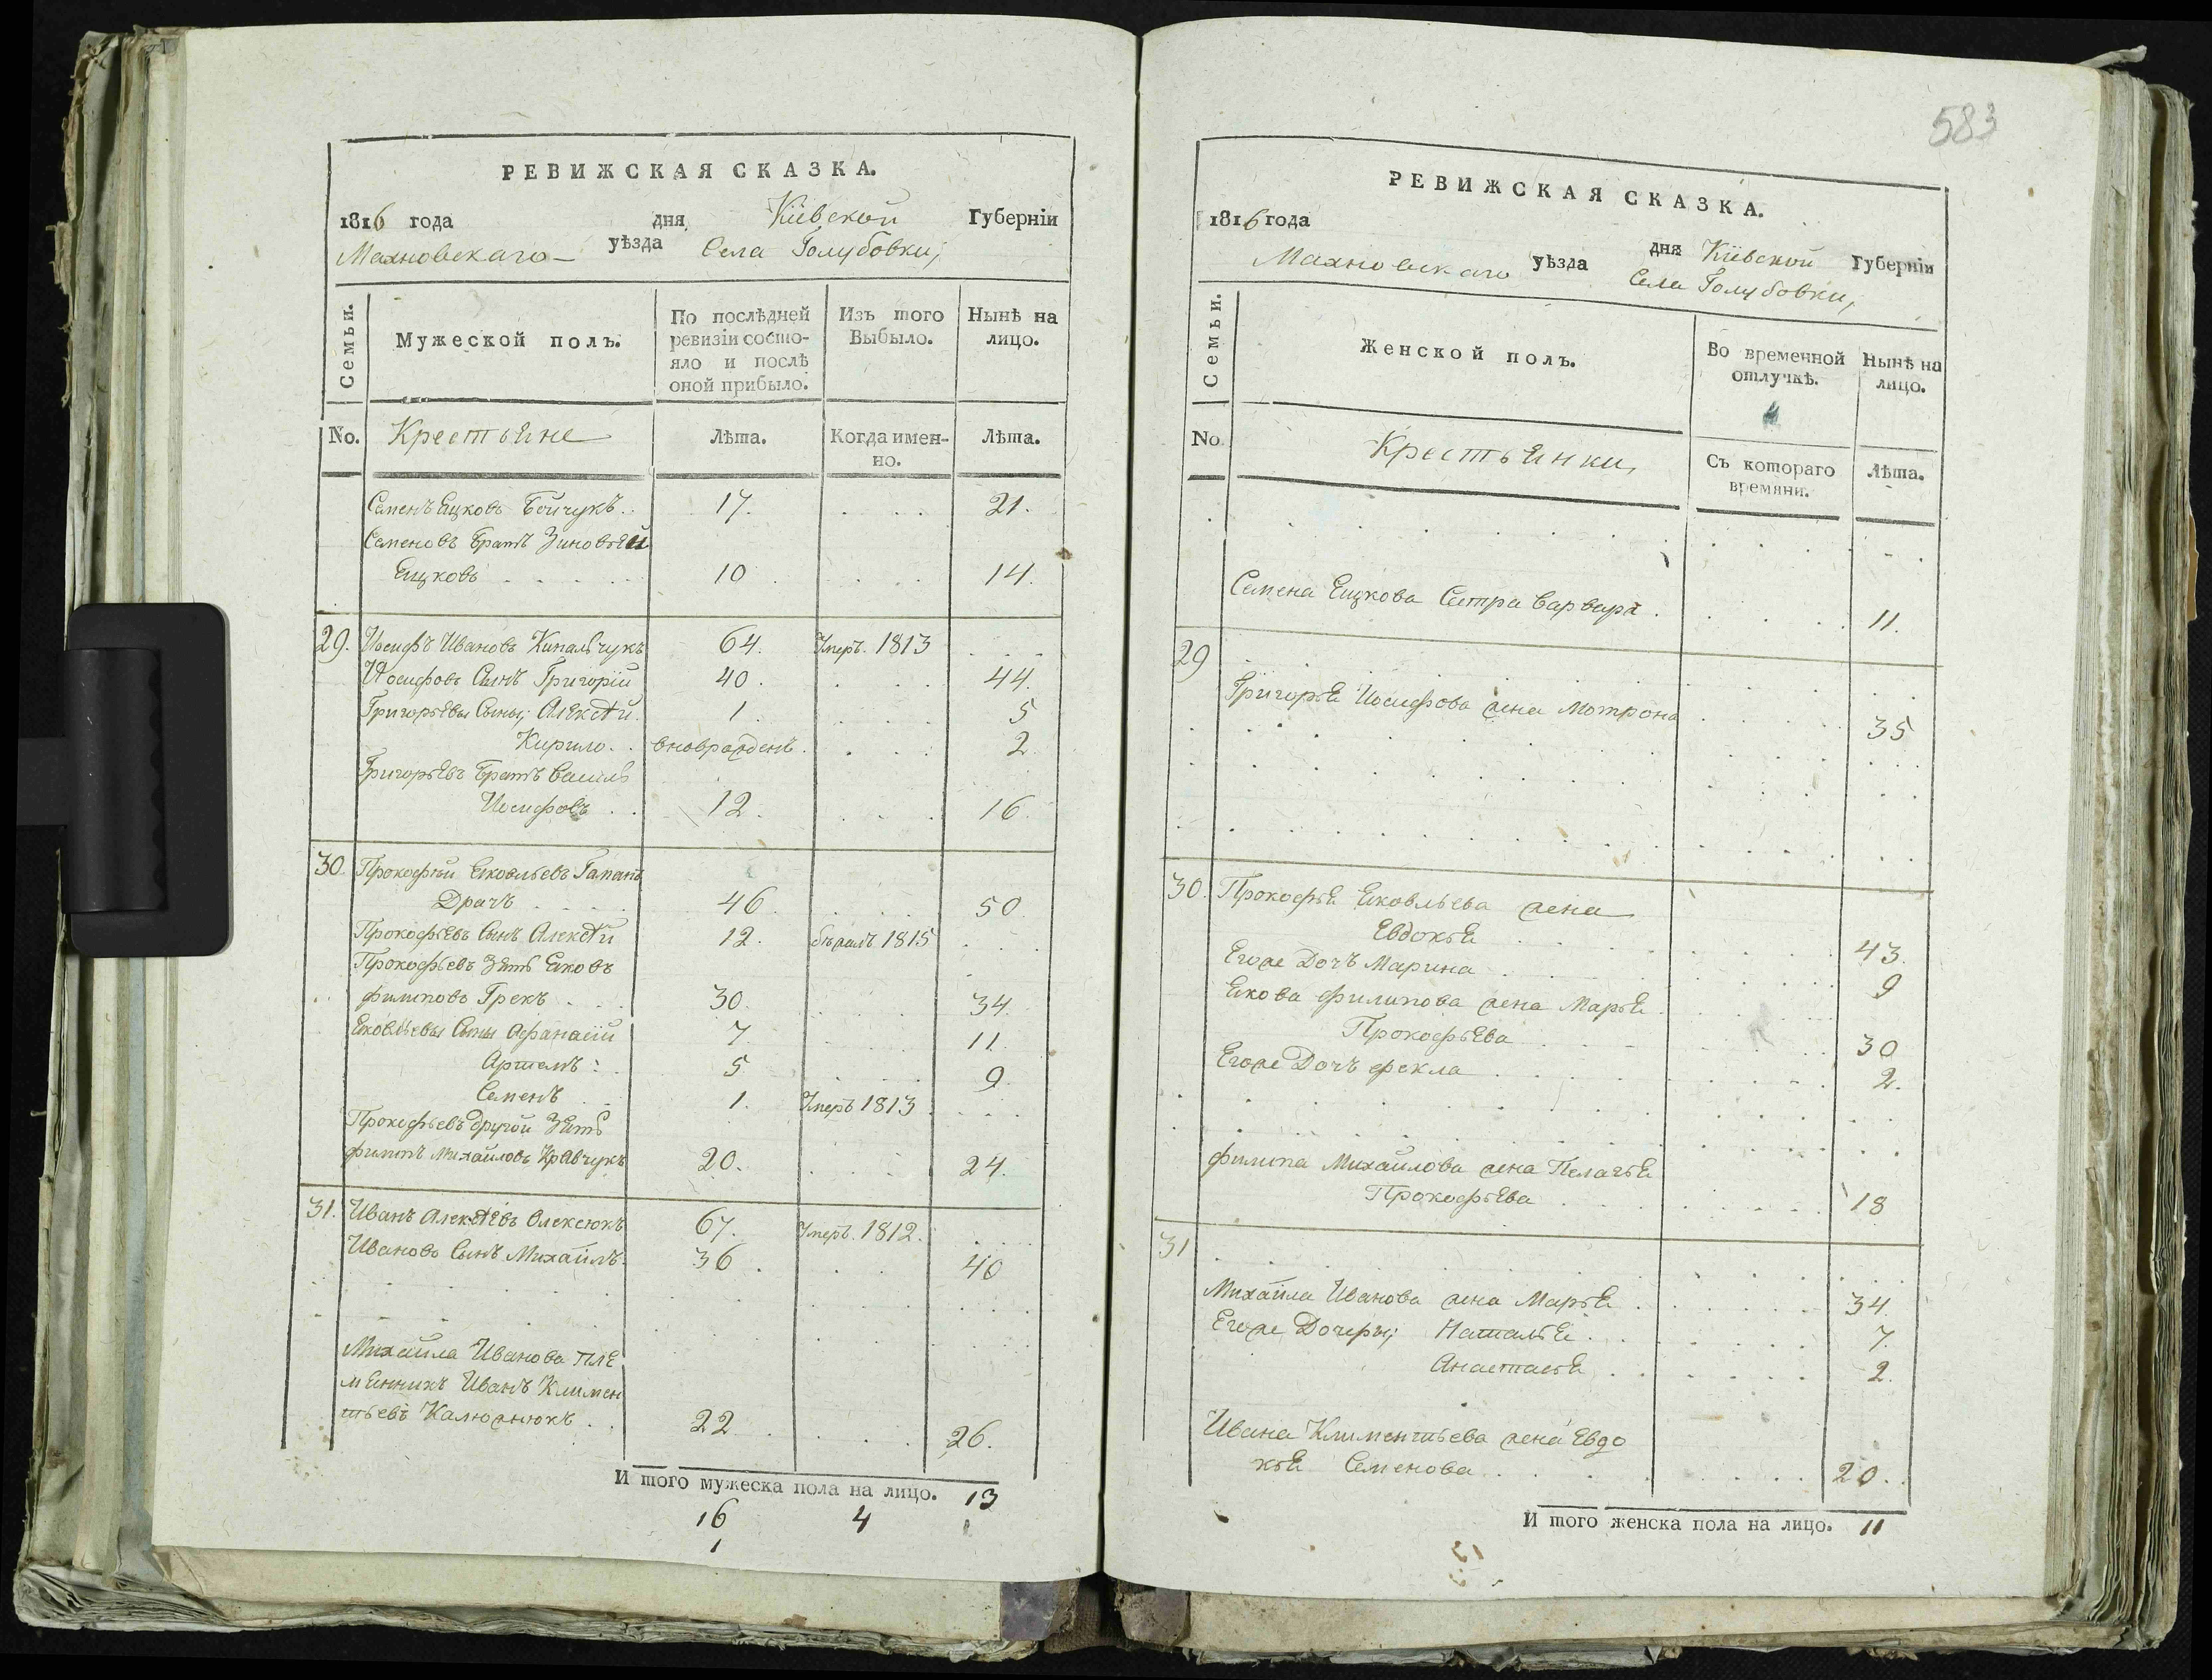 РЕВИЖСКАЯ СКАЗКА.
1816 года дня Кіевской Губерніи
Махновскаго уѣзда Села Голубовки,
Семьи.
Мужеской полъ.
По послѣдней ревизіи состо-
яло и послѣ
оной прибыло.
Изъ того
Выбыло.
Нынѣ на
лицо.
No. Крестьяне Лѣта. Когда имен-
но. Лѣта.
Семенъ Яцковъ Бойчукъ 17. 21.
Семеновъ Братъ Зиновѣй
Яцковъ 10 14.
29. Иосифъ Ивановъ Кипальчукъ 64. Умеръ. 1813
Иосифовъ Сынъ Григорій 40. 44.
Григорьевы Сыны; Алексѣй. 1. 5
Кирило. вноврожденъ. 2
Григорьевъ Братъ Василь
Иосифовъ 12. 16.
30. Прокофій Яковлевъ Гапанъ
Драчъ 46. 50
Прокофьевъ Сынъ Алексѣй 12. бѣжалъ 1815
Прокофьевъ Зять Яковъ
филиповъ Грекъ 30. 34.
Яковлевы Сыны Афанасій 7. 11.
Артемъ: 5 9.
Семенъ 1. Умеръ 1813
Прокофьевъ другой Зять
филипъ Михайловъ Кравчукъ 20. 24.
31. Иванъ Алексѣевъ Олексюкъ 67. Умеръ. 1812.
Ивановъ Сынъ Михайлъ. 36. 40
Михайла Иванова пле
мянникъ Иванъ Климен
тьевъ Калюжнюкъ 22 26.
И того мужеска пола на лицо. 13
16 4
1
583
РЕВИЖСКАЯ СКАЗКА.
1816 года дня Кіевской Губерніи
Махновскаго уѣзда Села Голубовки,
Семьи.
Женской полъ.
Во временной
отлучкѣ.
Нынѣ на
лицо.
No. Крестьянки, Съ котораго
времяни. Лѣта.
Семена Яцкова Сестра Варвара. 11.
29
Григорья Иосифова жена Мотрона 35
30. Прокофья Яковлева жена
Евдокья 43.
Егоже Дочъ Марина 9
Якова филипова жена Марья.
Прокофьева 30
Егоже Дочъ фекла 2.
филипа Михайлова жена Пелагья
Прокофьева 18
31
Михайла Иванова жена Марья 34.
Егоже Дочери; Наталья 7.
Анастасья 2.
Ивана Климентьева жена Евдо
кья Семенова 20.
И того женска пола на лицо. 11